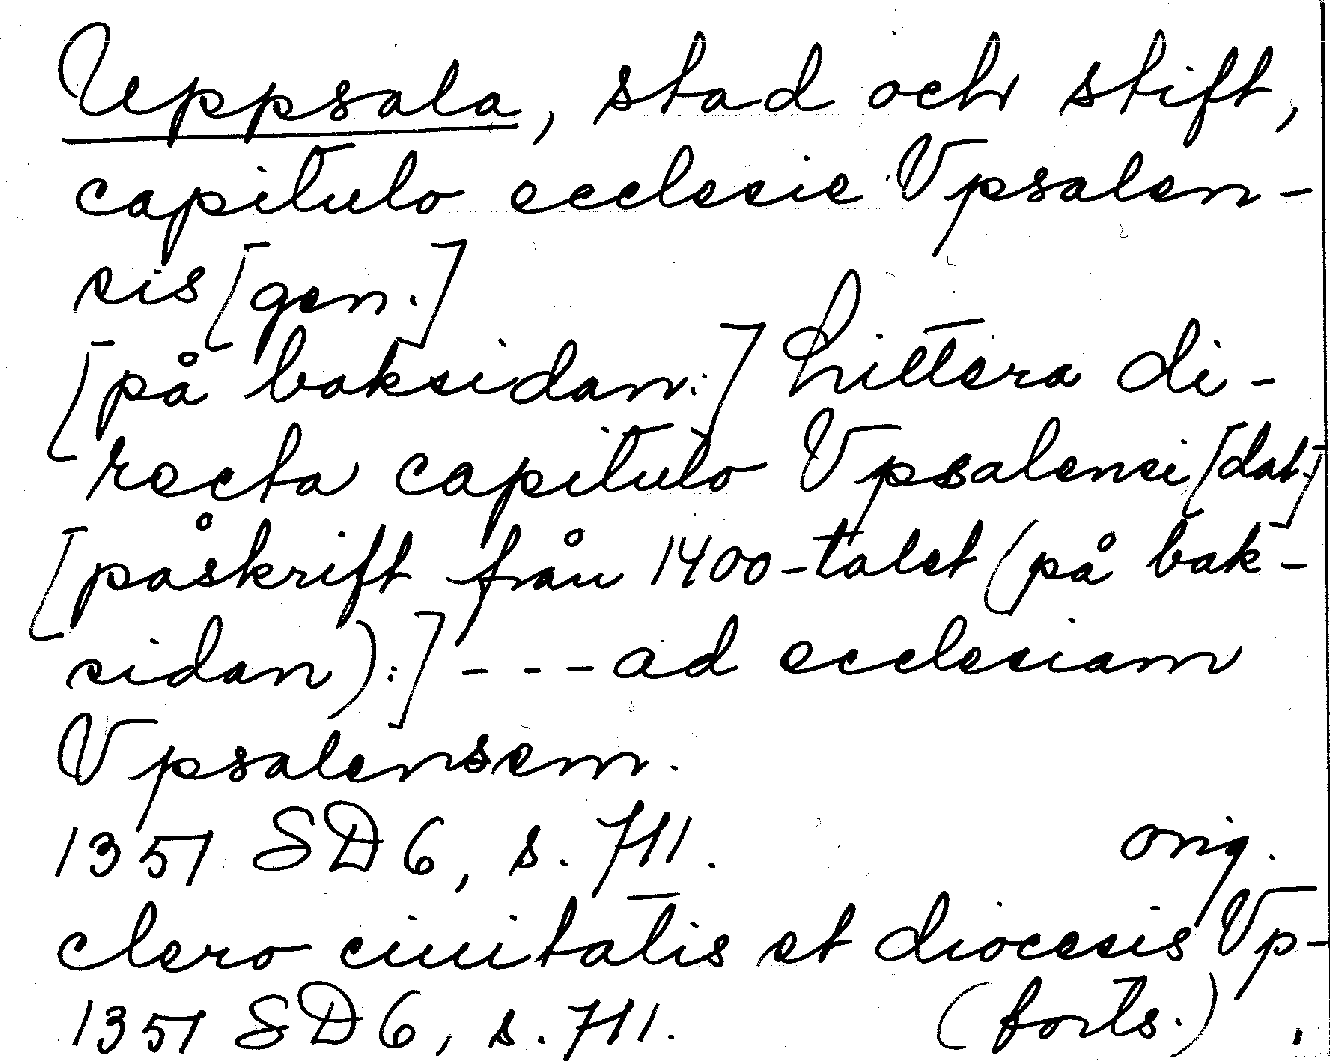 Uppsala, stad och stift,
capitulo ecclesie Vpsalen-
sis [gen.]
[på baksidan:] Littera di-
recta capitulo Vpsalensi [dat.]
[påskrift från 1400-talet (på bak-
sidan):] - - - ad ecclesiam
Vpsalensem.
1351 SD 6, s. 711. orig.
clero ciuitatis et diocesis Vp-
1351 SD 6, s. 711. (forts.)